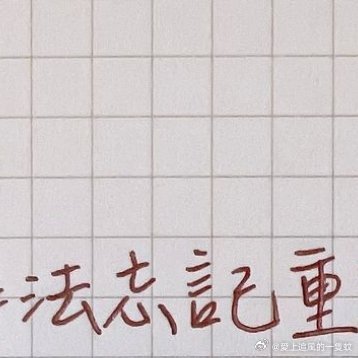 法忘記重
@愛上追風的一隻蚊